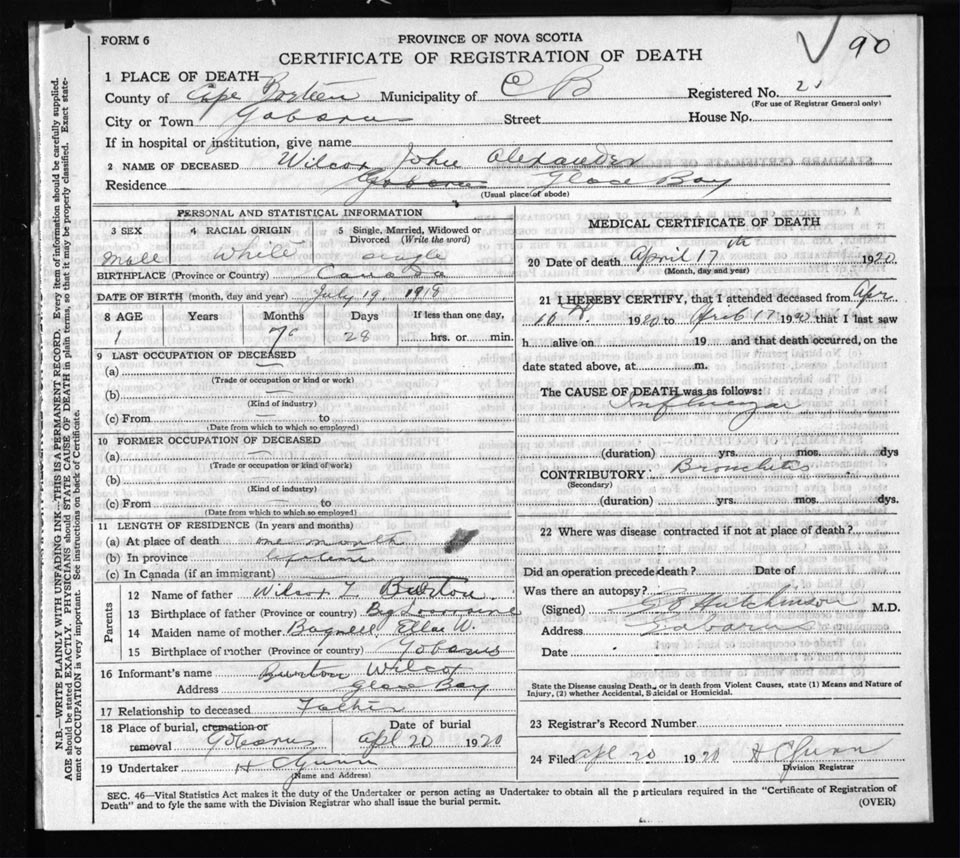 FORM 6
PROVINCE OF NOVA SCOTIA
90
CERTIFICATE OF REGISTRATION OF DEATH
1 PLACE OF DEATH—
County of Cape Breton Municipality of C B Registered No. 21
(For use of Registrar General only)
City or Town Gabarus Street House No.
If in hospital or institution, give name
2 NAME OF DECEASED Wilcox John Alexander
Residence Gabarus Glace Bay
(Usual place of abode)
PERSONAL AND STATISTICAL INFORMATION
3 SEX 4 RACIAL ORIGIN 5 Single, Married, Widowed or Divorced (Write the word)
Male White single
BIRTHPLACE (Province or Country) Canada
DATE OF BIRTH (month, day and year) July 19. 1918
8 AGE Years Months Days If less than one day,
1 28 hrs. or min.
9 LAST OCCUPATION OF DECEASED
(a) —
(Trade or occupation or kind or work)
(b) —
(Kind of industry)
(c) From — to
(Date from which to which so employed)
10 FORMER OCCUPATION OF DECEASED
(a) —
(Trade or occupation or kind of work)
(b)
(Kind of industry)
(c) From to
(Date from which to which so employed)
11 LENGTH OF RESIDENCE (In years and months)
(a) At place of death one month
(b) In province lifetime
(c) In Canada (if an immigrant)
Parents
12 Name of father Wilcox Burton
13 Birthplace of father (Province or country) Big Lorraine
14 Maiden name of mother Bagnell, Ella W.
15 Birthplace of mother (Province or country) Gabarus
16 Informant's name Burton Wilcox
Address Glace Bay
17 Relationship to deceased Father
18 Place of burial, cremation or removal Gabarus Date of burial Apl 20 1920
19 Undertaker H C Gunn
(Name and Address)
MEDICAL CERTIFICATE OF DEATH
20 Date of death April 17th 1920
(Month, day and year)
21 I HEREBY CERTIFY, that I attended deceased from Apr
1920 to 17 1920 that I last saw
h alive on 19 and that death occurred, on the
date stated above, at m.
The CAUSE OF DEATH was as follows:
Influenza
(duration) yrs. mos. dys
CONTRIBUTORY Bronchitis
(Secondary)
(duration) yrs. mos. dys.
22 Where was disease contracted if not at place of death?
Did an operation precede death? Date of
Was there an autopsy?
(Signed) Hutchinson M.D.
Address Gabarus
Date
State the Disease causing Death, or in death from Violent Causes, state (1) Means and Nature of
Injury, (2) whether Accidental, Suicidal or Homicidal.
23 Registrar's Record Number
24 Filed Apl 20 1920 H C Gunn
Division Registrar
SEC. 46—Vital Statistics Act makes it the duty of the Undertaker or person acting as Undertaker to obtain all the particulars required in the "Certificate of Registration of
Death" and to fyle the same with the Division Registrar who shall issue the burial permit.
(OVER)
N.B.—WRITE PLAINLY WITH UNFADING INK—THIS IS A PERMANENT RECORD. Every item of information should be carefully supplied.
AGE should be stated EXACTLY. PHYSICIANS should STATE CAUSE OF DEATH in plain terms, so that it may be properly classified. Exact state-
ment of OCCUPATION is very important. See instructions on back of Certificate.